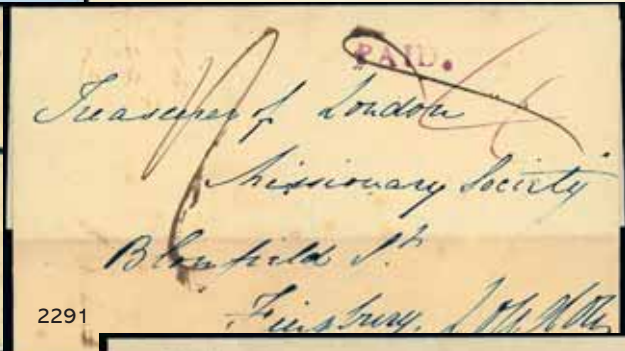 PAID.
Treasurer of London
Missionary Society
Blomfield St
Finsbury. London
2291